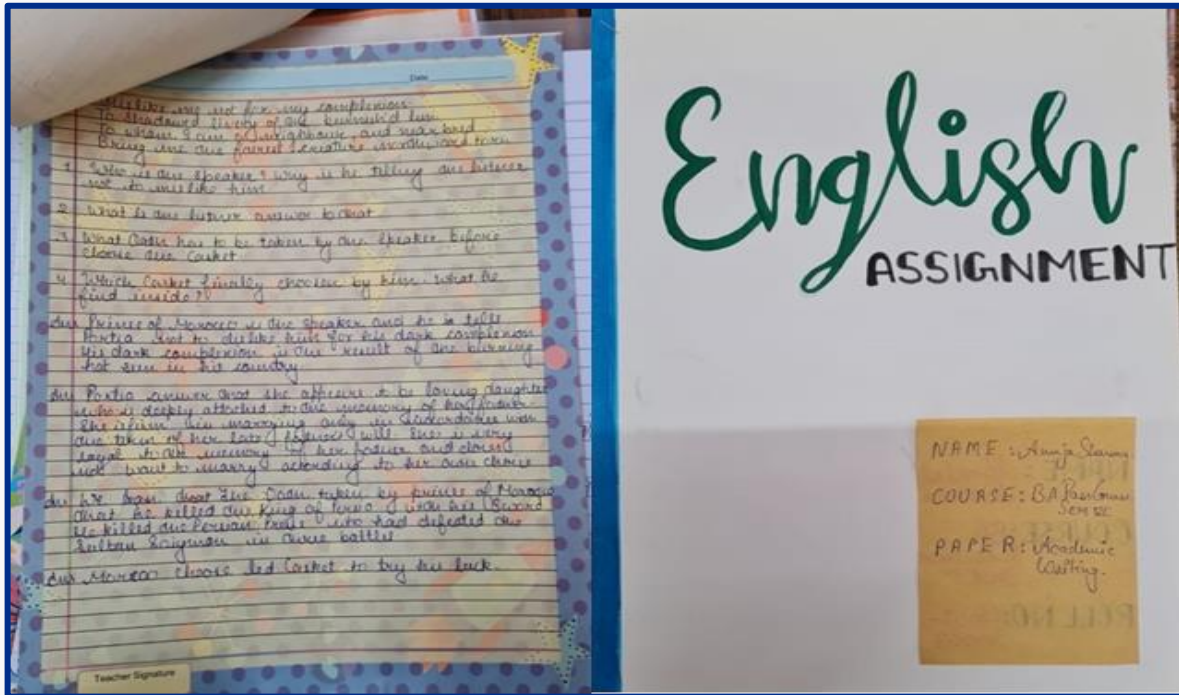 Date
Mislike me not for my complexion
To shadowed livery of the burnish'd sun
To whom I am a neighbour, and near bred
Bring me the fairest creature northward born
1. Who is the speaker? Why is he telling the listener
not to mislike him
2. What is the listener answer to that
3. What Oath has to be taken by the speaker before
choose the Casket
4. Which Casket finally choosen by him. What he
find inside?
Ans Prince of Morocco is the speaker and he is tells
Portia not to dislike him for his dark complexion
His dark complexion is the result of the burning
hot sun in his country
Ans Portia answer that she appears to be loving daughter
who is deeply attached to the memory of her father
She is firm in marrying only in accordance with
the of her late father's will. She is very
loyal to the memory of her father and does
not want to marry according to her own choice
Ans that the Oath taken by prince of Morocco
that he killed the King of with his Sword
He killed the Persian who had defeated the
Sultan in three battles
Ans Morocco choose led Casket to try his luck.
Teacher Signature
English
ASSIGNMENT
NAME : Sharma
COURSE : BA
SEM
PAPER : Academic
Writing.
ROLL NO